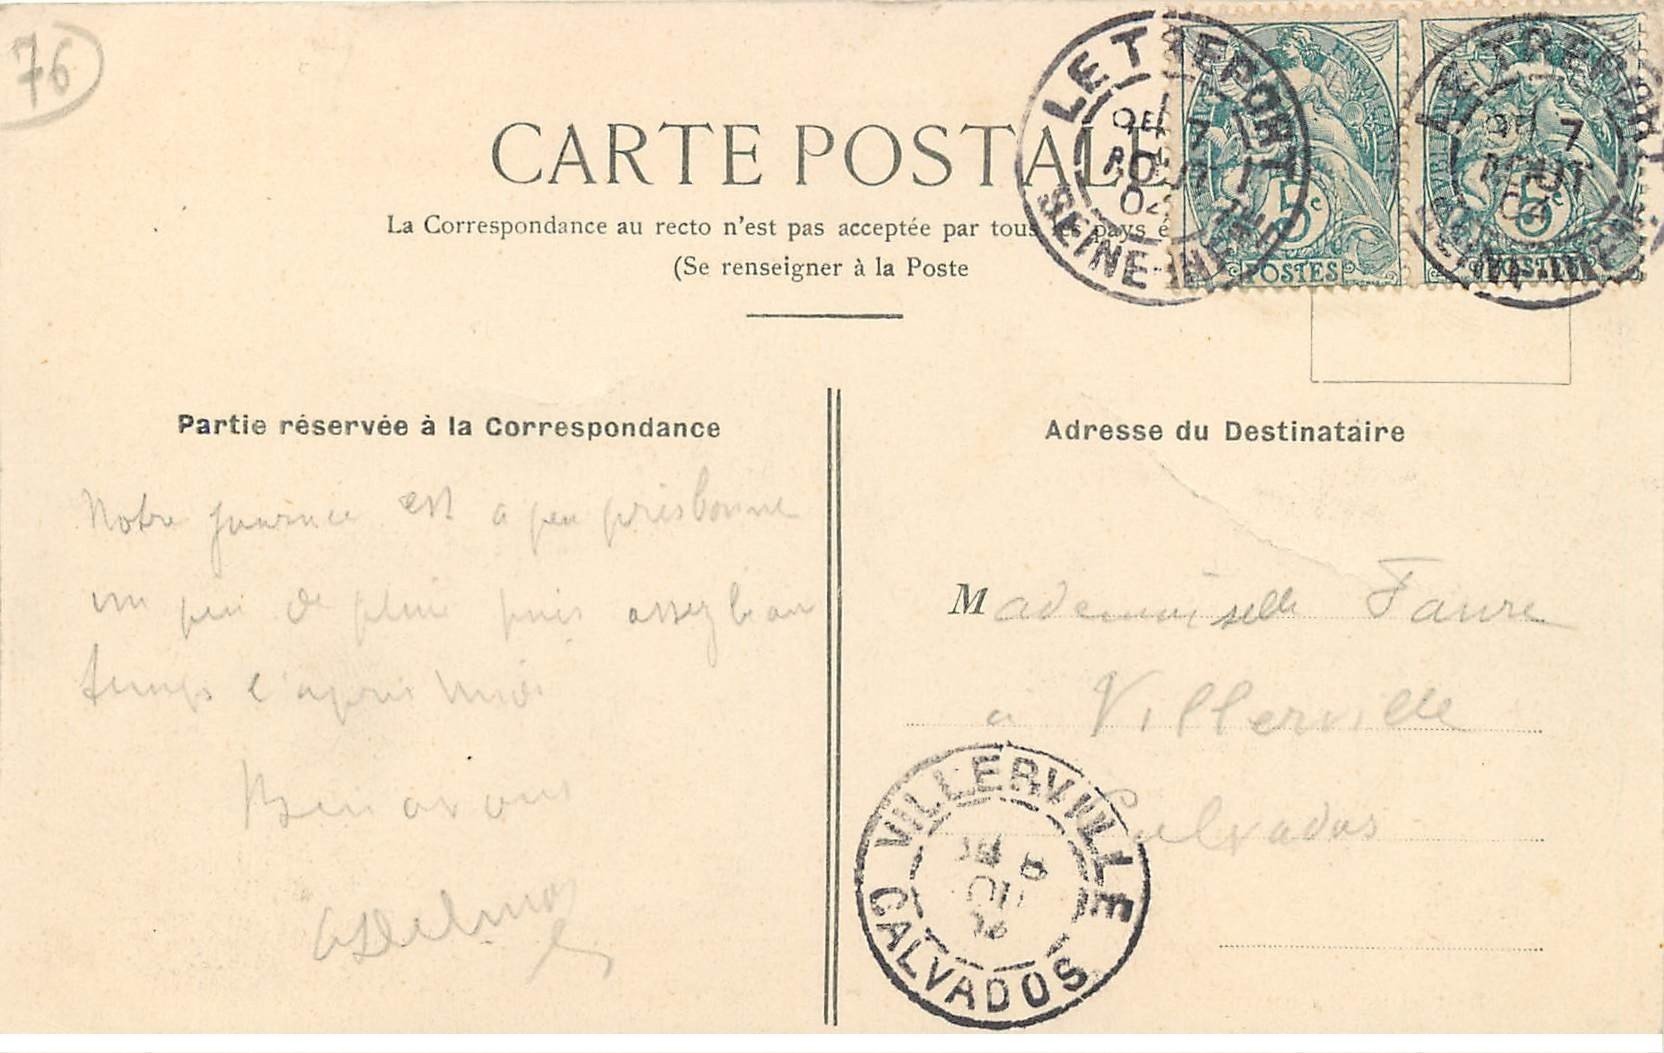 76
CARTE POSTALE
La Correspondance au recto n'est pas acceptée par tous les pays é
(Se renseigner à la Poste
LE TREPORT
7
AOUT
04
SEINE-INFRE
5c
POSTES
LE TREPORT
7
AOUT
04
5c
POSTES
Partie réservée à la Correspondance
Adresse du Destinataire
Notre journée est a peu près bonne
un peu de pluie puis assez beau
temps l'après midi
Mademoiselle Faure
a Villerville
Calvados
VILLERVILLE
CALVADOS